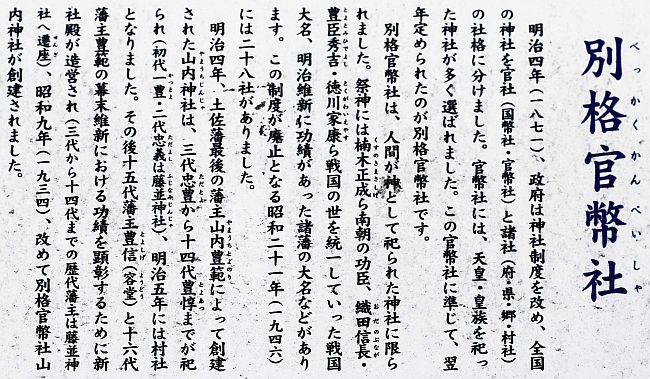 別格官幣社
べっかくかんぺいしゃ
明治四年(一八七一)、政府は神社制度を改め、全国
の神社を官社(国幣社・官幣社)と諸社(府・県・郷・村社)
の社格に分けました。官幣社には、天皇・皇族を祀っ
た神社が多く選ばれました。この官幣社に準じて、翌
年定められたのが別格官幣社です。
別格官幣社は、人間が神として祀られた神社に限ら
れました。祭神には楠木正成ら南朝の功臣、織田信長・
豊臣秀吉・徳川家康ら戦国の世を統一していった戦国
大名、明治維新に功績があった諸藩の大名などがあり
ます。この制度が廃止となる昭和二十一年(一九四六)
には二十八社がありました。
明治四年、土佐藩最後の藩主山内豊範によって創建
された山内神社は、三代忠豊から十四代豊惇までが祀
られ(初代一豊・二代忠義は藤並神社)、明治五年には村社
となりました。その後十五代藩主豊信(容堂)と十六代
藩主豊範の幕末維新における功績を顕彰するために新
社殿が造営され(三代から十四代までの歴代藩主は藤並神
社へ遷座)、昭和九年(一九三四)、改めて別格官幣社山
内神社が創建されました。